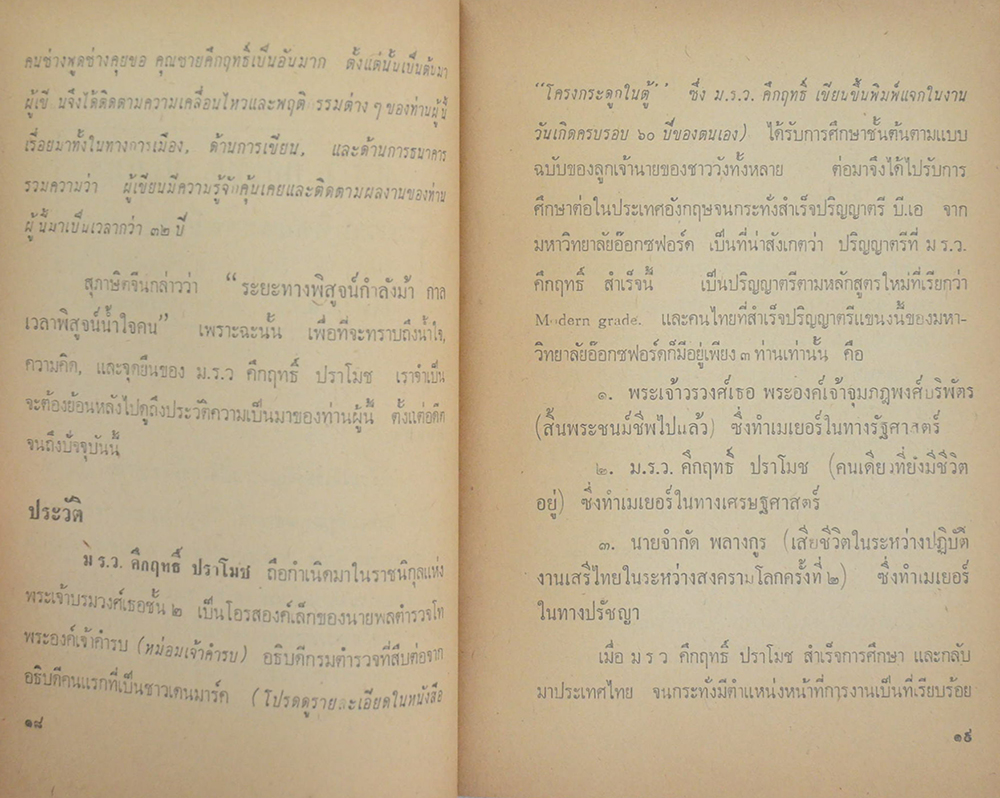 คนช่างพูดช่างคุยขอ คุณชายคึกฤทธิ์เป็นอันมาก ตั้งแต่นั้นเป็นต้นมา
ผู้เขี นจึงได้ติดตามความเคลื่อนไหวและพฤติ รรมต่าง ๆ ของท่านผู้นี้
เรื่อยมาทั้งในทางการเมือง, ด้านการเขียน, และด้านการธนาคาร
รวมความว่า ผู้เขียนมีความรู้จักคุ้นเคยและติดตามผลงานของท่าน
ผู้นี้มาเป็นเวลากว่า ๓๒ ปี
สุภาษิตจีนกล่าวว่า “ระยะทางพิสูจน์กำลังม้า กาล
เวลาพิสูจน์น้ำใจคน” เพราะฉะนั้น เพื่อที่จะทราบถึงน้ำใจ,
ความคิด, และจุดยืนของ ม.ร.ว คึกฤทธิ์ ปราโมช เราจำเป็น
จะต้องย้อนหลังไปดูถึงประวัติความเป็นมาของท่านผู้นี้ ตั้งแต่อดีต
จนถึงปัจจุบันนี้
ประวัติ
ม ร.ว. คึกฤทธิ์ ปราโมช ถือกำเนิดมาในราชนิกุลแห่ง
พระเจ้าบรมวงศ์เธอชั้น ๒ เป็นโอรสองค์เล็กของนายพลตำรวจโท
พระองค์เจ้าคำรบ (หม่อมเจ้าคำรบ) อธิบดีกรมตำรวจที่สืบต่อจาก
อธิบดีคนแรกที่เป็นชาวเดนมาร์ค (โปรดดูรายละเอียดในหนังสือ
๑๘
“โครงกระดูกในตู้” ซึ่ง ม.ร.ว. คึกฤทธิ์ เขียนขึ้นพิมพ์แจกในงาน
วันเกิดครบรอบ ๖๐ ปีของตนเอง) ได้รับการศึกษาชั้นต้นตามแบบ
ฉบับของลูกเจ้านายของชาววังทั้งหลาย ต่อมาจึงได้ไปรับการ
ศึกษาต่อในประเทศอังกฤษจนกระทั่งสำเร็จปริญญาตรี บี.เอ จาก
มหาวิทยาลัยอ๊อกซฟอร์ด เป็นที่น่าสังเกตว่า ปริญญาตรีที่ ม ร.ว.
คึกฤทธิ์ สำเร็จนี้ เป็นปริญญาตรีตามหลักสูตรใหม่ที่เรียกว่า
Modern grade. และคนไทยที่สำเร็จปริญญาตรีแขนงนี้ของมหา-
วิทยาลัยอ๊อกซฟอร์ดก็มีอยู่เพียง ๓ ท่านเท่านั้น คือ
๑. พระเจ้าวรวงศ์เธอ พระองค์เจ้าจุมภฎพงศ์บริพัตร
(สิ้นพระชนม์ชีพไปแล้ว) ซึ่งทำเมเยอร์ในทางรัฐศาสตร์
๒. ม.ร.ว. คึกฤทธิ์ ปราโมช (คนเดียวที่ยังมีชีวิต
อยู่) ซึ่งทำเมเยอร์ในทางเศรษฐศาสตร์
๓. นายจำกัด พลางกูร (เสียชีวิตในระหว่างปฏิบัติ
งานเสรีไทยในระหว่างสงครามโลกครั้งที่ ๒) ซึ่งทำเมเยอร์
ในทางปรัชญา
เมื่อ ม ร ว คึกฤทธิ์ ปราโมช สำเร็จการศึกษา และกลับ
มาประเทศไทย จนกระทั่งมีตำแหน่งหน้าที่การงานเป็นที่เรียบร้อย
๑๙